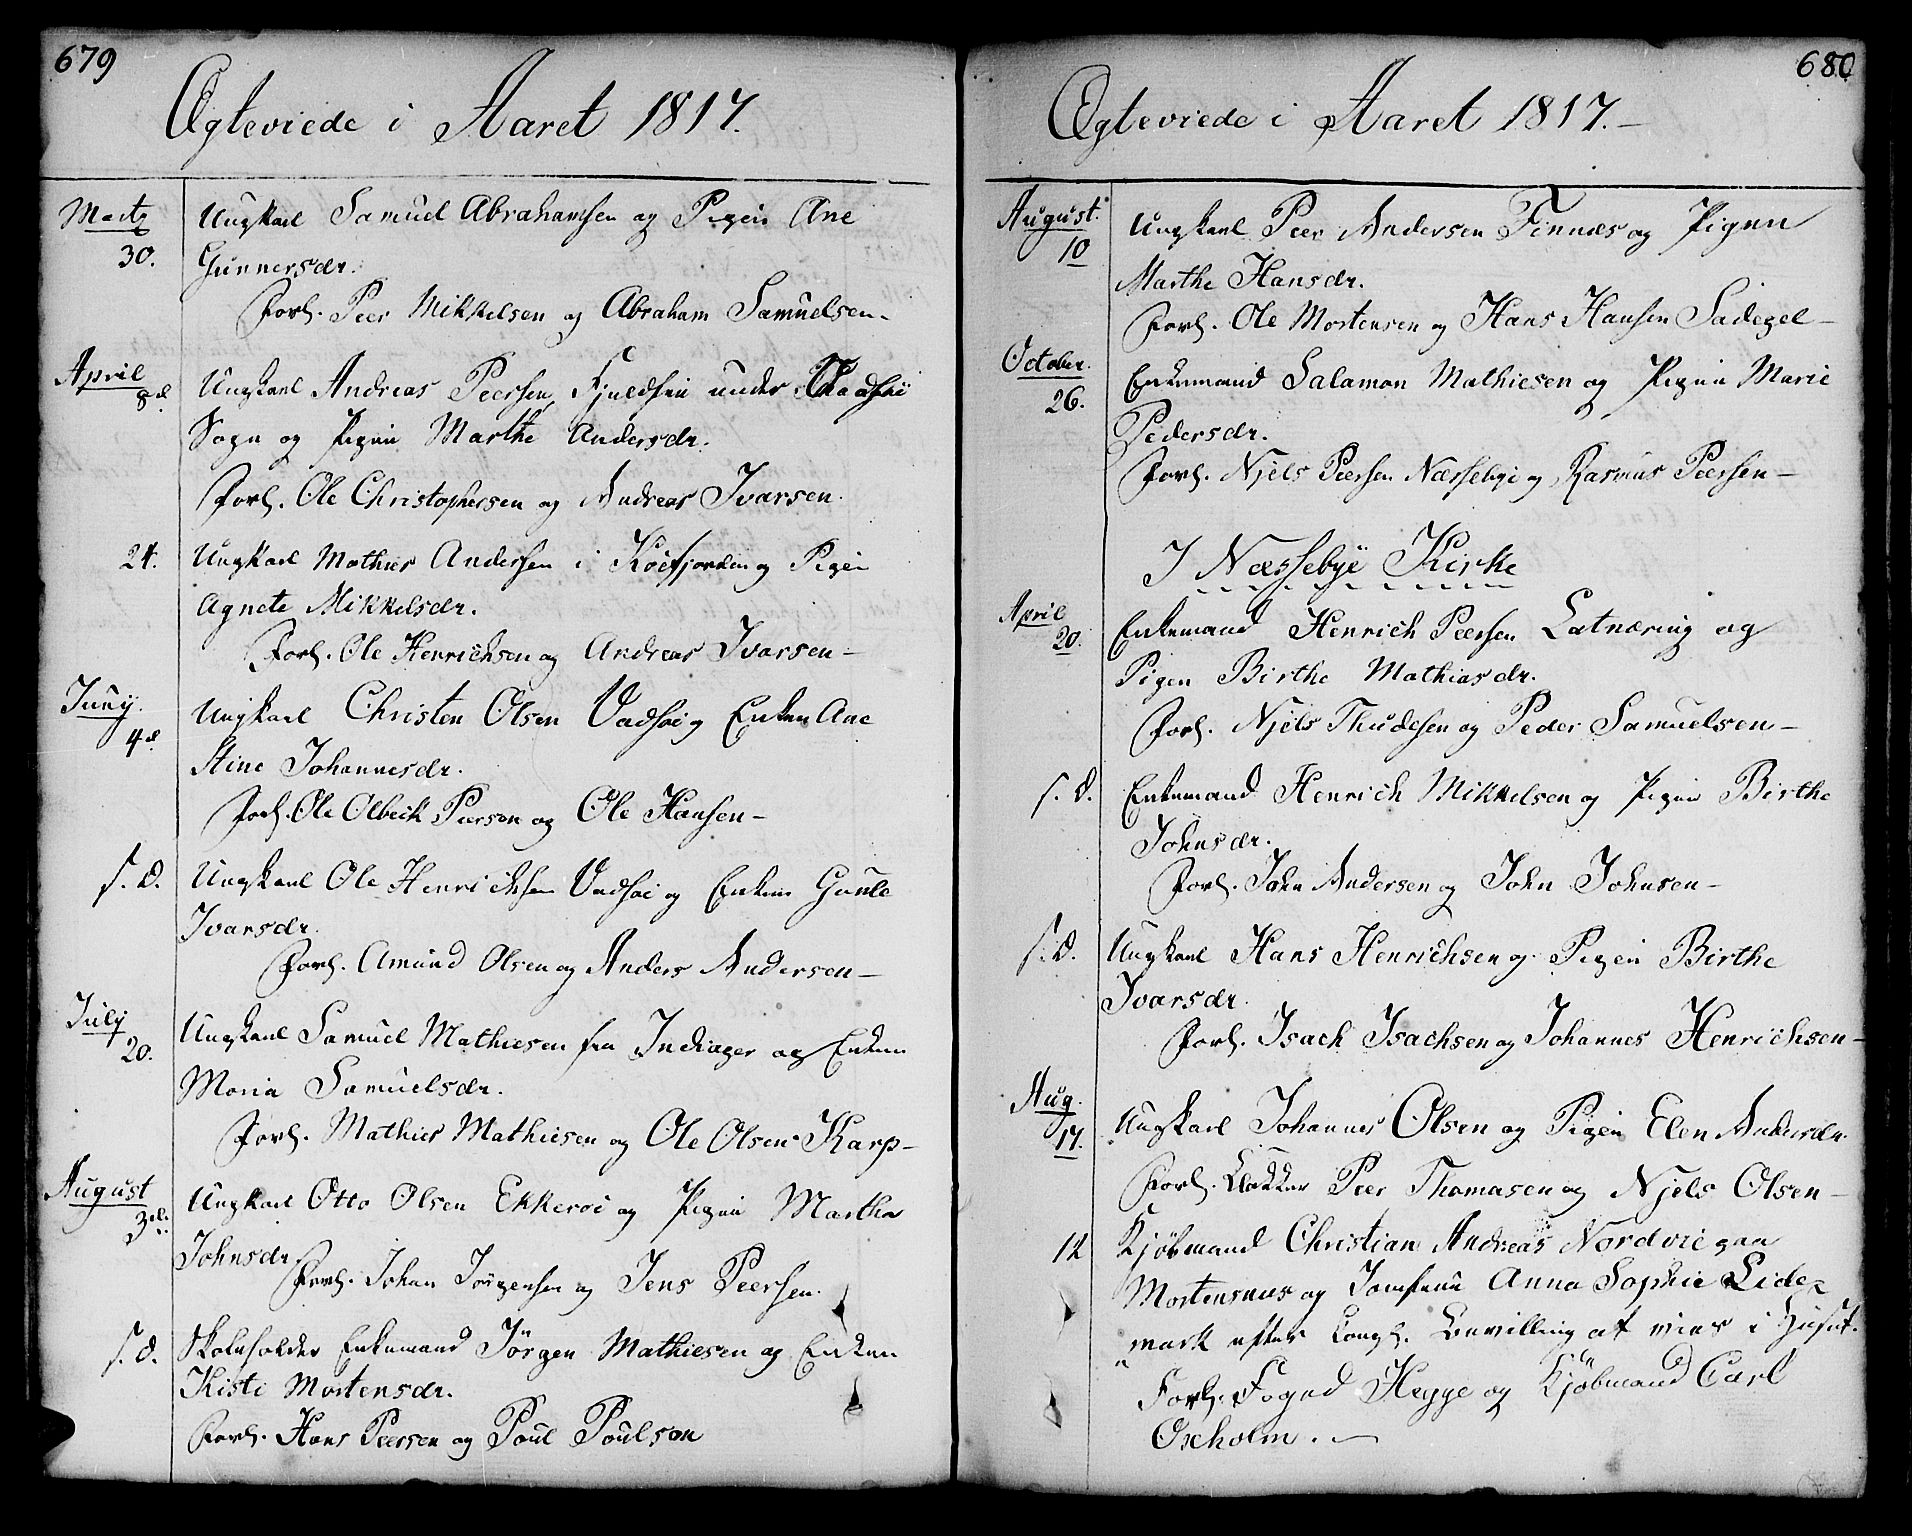 679
Ægteviede i Aaret 1817.
Martz
30.
Ungkarl Samuel Abrahamsen og Pigen Ane
Gunnersdr.
Forl. Peer Mikkelsen og Abraham Samuelsen-
April
8d.
Ungkarl Andreas Peersen, under Vadsøe
Sogn og Pigen Marthe Andersdr.
Forl. Ole Christophersen og Andreas Ivarsen.
24.
Ungkarl Mathies Andersen i Kiøefjorden og Pigen
Agnete Mikkelsdr.
Forl. Ole Henrichsen og Andreas Ivarsen-
Juny.
4d.
Ungkarl Christen Olsen Vadsøe og Enken Ane
Stine Johannesdr.
Forl. Ole Olbech Peerson og Ole Hansen-
s. d.
Ungkarl Ole Henrichsen Vadsøe og Enken Gunle
Ivarsdr.
Forl. Amund Olsen og Anders Andersen-
July
20.
Ungkarl Samuel Mathiesen fra Indiager og Enken
Maria Samuelsdr.
Forl. Mathies Mathiesen og Ole Olsen Karp-
August
3d.
Ungkarl Otto Olsen Ekkerøe og Pigen Martha
Johnsdr.
Forl. Johan Jørgensen og Jens Peersen.
s. d.
Skoleholder Enkemand Jørgen Mathiesen og Enken
Kisti Mortensdr.
Forl. Hans Peersen og Poul Poulson
680
Ægteviede i Aaret 1817.-
August.
10
Ungkarl Peer Andersen Finnæs og Pigen
Marthe Hansdr.
Forl. Ole Mortensen og Hans Hansen Sadegel-
October.
26.
Enkemand Salamon Mathiesen og Pigen Marie
Pedersdr.
Forl. Njels Peersen Næssebye og Rasmus Peersen-
I Næssebye Kirke
April
20.
Enkemand Henrich Peersen Latnæring og
Pigen Birthe Mathiasdr.
Forl. Njels Thudesen og Peder Samuelsen-
s. d.
Enkemand Henrich Mikkelsen og Pigen Birthe
Johnsdr.
Forl. John Andersen og John Johnsen-
s. d.
Ungkarl Hans Henrichsen og Pigen Birthe
Ivarsdr.
Forl. Isach Isachsen og Johannes Henrichsen-
Aug.
17.
Ungkarl Johannes Olsen og Pigen Elen Andersdr.
Forl. Klokker Peer Thomasen og Njels Olsen-
12
Kjøbmand Christian Andreas Nordvie paa
Mortensnæs og Jomfrue Anna Sophie Lide-
mark efter Kongl. Bevilling at vies i Huset.
Forl. Foged Hegge og Kjøbmand Carl
Oxholm.-